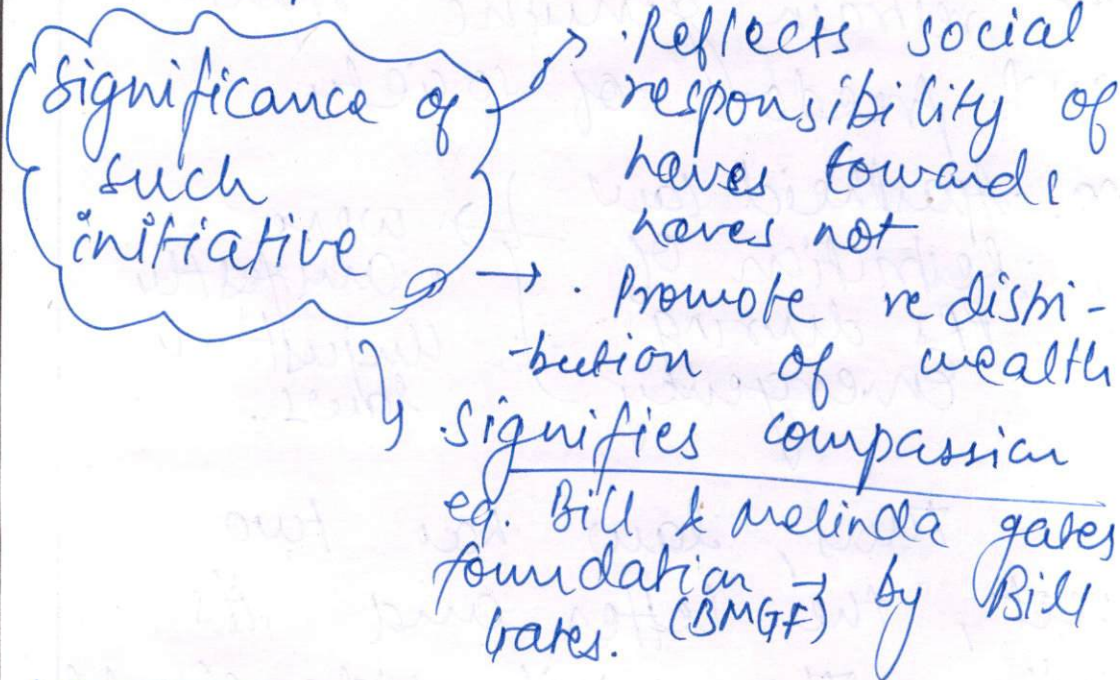 Significance of
such
initiative
→ · Reflects social
responsibility of
haves towards
haves not
→ · Promote redistri-
-bution of wealth
· Signifies compassion
eg. Bill & Melinda gates
foundation → by Bill
Gates. (BMGF)